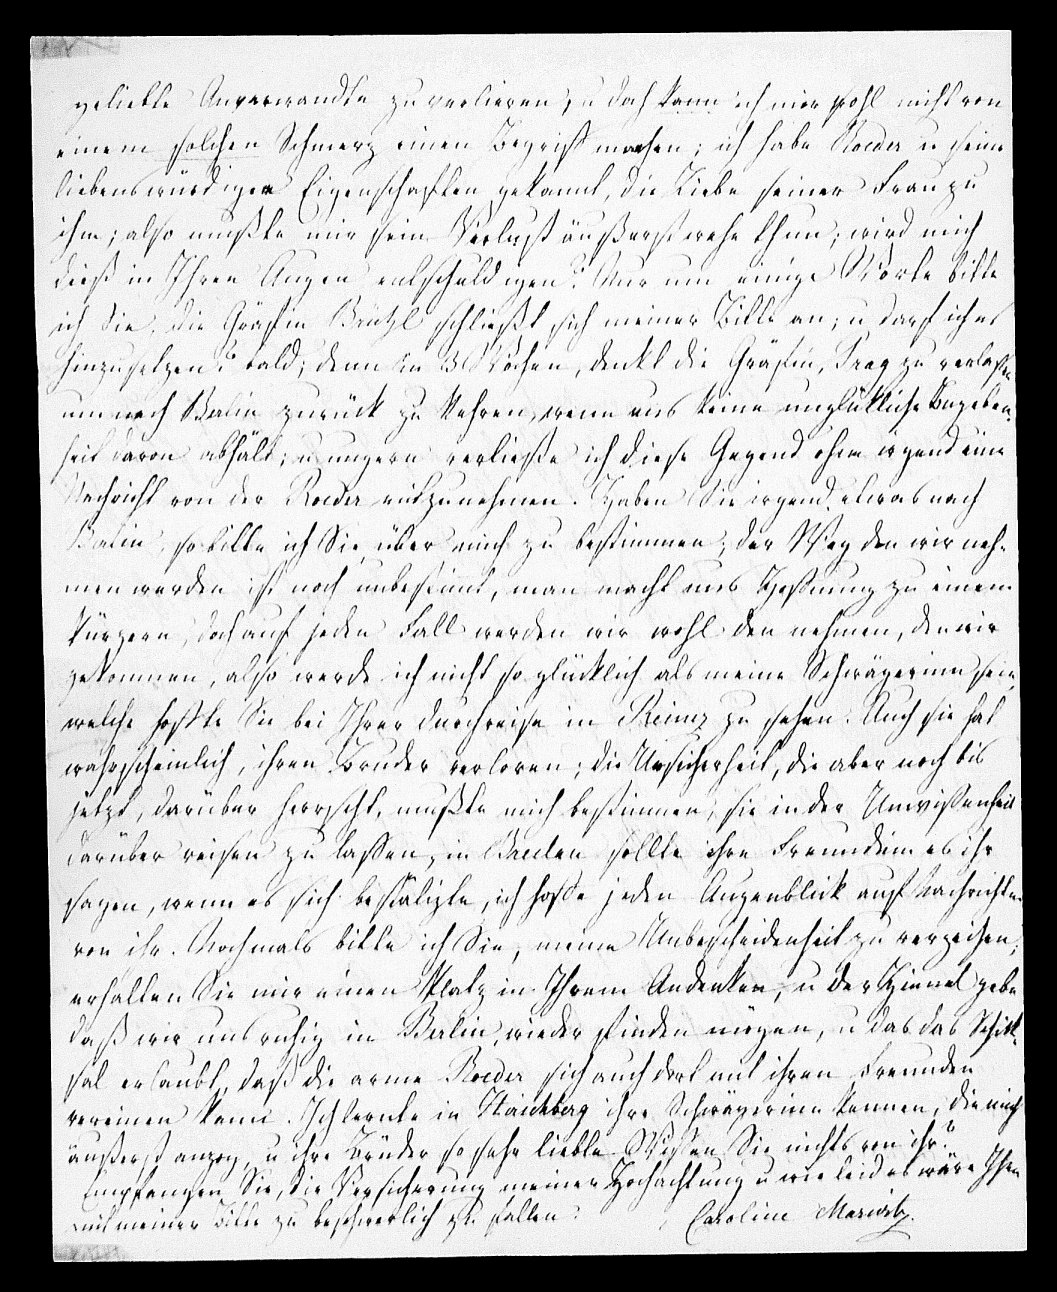 geliebte Anverwandte zu verlieren, u doch kann ich mir wohl nicht von
einem solchen Schmerz einen Begriff machen; ich habe Roeder u seine
liebenswürdigen Eigenschaften gekannt, die Liebe seiner Frau zu
ihm; also mußte mir sein Verlust äußerst wehe thun; wird mich
dieß in Ihren Augen entschuldigen? Nur um einige Worte bitte
ich Sie. Die Gräfin Brühl schließt sich meiner Bitte an; u darf ich es
hinzusetzen? bald; denn in 3 Wochen, denkt die Gräfin, Prag zu verlaßen
um nach Berlin zurück zu kehren, wenn uns keine unglückliche Begeben-
heit davon abhält; u ungern verließe ich diese Gegend ohne irgend eine
Nachricht von der Roeder mitzunehmen. Haben Sie irgend etwas nach
Berlin, so bitte ich Sie über mich zu bestimmen; der Weg den wir neh-
men werden ist noch unbestimt, man macht uns Hoffnung zu einem
kürzern, doch auf jeden Fall werden wir wohl den nehmen, den wir
gekommen, also werde ich nicht so glücklich als meine Schwägerinn sein,
welche hoffte Sie bei Ihrer Durchreise in zu sehen. Auch sie hat
wahrscheinlich, ihren Bruder verloren; die Unsicherheit, die aber noch bis
jetzt, darüber herrscht, mußte mich bestimmen, sie in der Unwißenheit
darüber reisen zu laßen, in sollte ihre Freundinn es ihr
sagen, wenn es sich bestätigte, ich hoffe jeden Augenblick auf Nachrichten
von ihr. Nochmals bitte ich Sie, meine Unbescheidenheit zu verzeihen,
erhalten Sie mir einen Platz in Ihrem Andenken, u der Himmel gebe
daß wir uns ruhig in Berlin, wieder finden mögen, u das das Schick-
sal erlaubt, daß die arme Roeder sich auch dort mit ihren Freunden
vereinen kann. Ich lernte in ihre Schwägerinn kennen, die mich
äußerst anzog, u ihre Brüder so sehr liebte. Wißen Sie nichts von ihr?
Empfangen Sie, die Versicherung meiner Hochachtung u wie leid es wäre Ihnen
mit meiner Bitte zu beschwerlich zu fallen.
Caroline Marwitz.